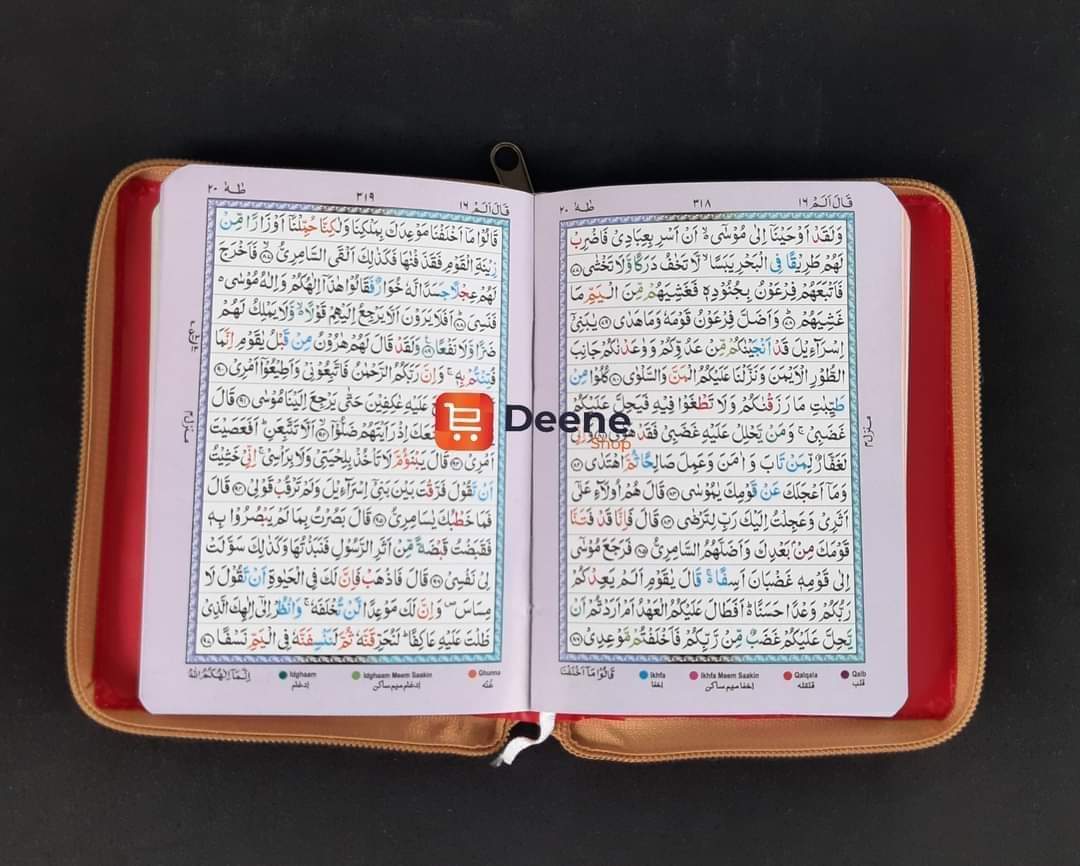 قَالَ اَلَمْ ١٦ ٣١٨ طٰهٰ ٢٠
وَلَقَدْ اَوْحَيْنَاۤ اِلٰى مُوْسٰۤى ۙ۬ اَنْ اَسْرِ بِعِبَادِىْ فَاضْرِبْ
لَهُمْ طَرِيْقًا فِى الْبَحْرِ يَبَسًا ۙ لَّا تَخٰفُ دَرَكًا وَّلَا تَخْشٰى ۝٧٧
فَاَتْبَعَهُمْ فِرْعَوْنُ بِجُنُوْدِهٖ فَغَشِيَهُمْ مِّنَ الْيَمِّ مَا
غَشِيَهُمْ ۝٧٨ وَاَضَلَّ فِرْعَوْنُ قَوْمَهٗ وَمَا هَدٰى ۝٧٩ يٰبَنِىْۤ
اِسْرَآءِيْلَ قَدْ اَنْجَيْنٰكُمْ مِّنْ عَدُوِّكُمْ وَوٰعَدْنٰكُمْ جَانِبَ
الطُّوْرِ الْاَيْمَنَ وَنَزَّلْنَا عَلَيْكُمُ الْمَنَّ وَالسَّلْوٰى ۝٨٠ كُلُوْا مِنْ
طَيِّبٰتِ مَا رَزَقْنٰكُمْ وَلَا تَطْغَوْا فِيْهِ فَيَحِلَّ عَلَيْكُمْ
غَضَبِىْ ۚ وَمَنْ يَّحْلِلْ عَلَيْهِ غَضَبِىْ فَقَدْ هَوٰى
لَغَفَّارٌ لِّمَنْ تَابَ وَاٰمَنَ وَعَمِلَ صَالِحًا ثُمَّ اهْتَدٰى ۝٨٢
وَمَاۤ اَعْجَلَكَ عَنْ قَوْمِكَ يٰمُوْسٰى ۝٨٣ قَالَ هُمْ اُولَآءِ عَلٰٓى
اَثَرِىْ وَعَجِلْتُ اِلَيْكَ رَبِّ لِتَرْضٰى ۝٨٤ قَالَ فَاِنَّا قَدْ فَتَنَّا
قَوْمَكَ مِنْۢ بَعْدِكَ وَاَضَلَّهُمُ السَّامِرِىُّ ۝٨٥ فَرَجَعَ مُوْسٰۤى
اِلٰى قَوْمِهٖ غَضْبَانَ اَسِفًا ۚ۬ قَالَ يٰقَوْمِ اَلَمْ يَعِدْكُمْ
رَبُّكُمْ وَعْدًا حَسَنًا ؕ اَفَطَالَ عَلَيْكُمُ الْعَهْدُ اَمْ اَرَدْتُّمْ اَنْ
يَّحِلَّ عَلَيْكُمْ غَضَبٌ مِّنْ رَّبِّكُمْ فَاَخْلَفْتُمْ مَّوْعِدِىْ ۝٨٦
قَالُوْا مَاۤ اَخْلَفْنَا
Ikhfa Ikhfa Meem Saakin Qalqala Qalb
اخفا اخفا میم ساکن قلقله قلب
طٰهٰ ٢٠ ٣١٩ قَالَ اَلَمْ ١٦
قَالُوْا مَاۤ اَخْلَفْنَا مَوْعِدَكَ بِمَلْكِنَا وَلٰكِنَّا حُمِّلْنَاۤ اَوْزَارًا مِّنْ
زِيْنَةِ الْقَوْمِ فَقَذَفْنٰهَا فَكَذٰلِكَ اَلْقَى السَّامِرِىُّ ۝٨٧ فَاَخْرَجَ
لَهُمْ عِجْلًا جَسَدًا لَّهٗ خُوَارٌ فَقَالُوْا هٰذَاۤ اِلٰهُكُمْ وَاِلٰهُ مُوْسٰى
فَنَسِىَ ۝٨٨ اَفَلَا يَرَوْنَ اَلَّا يَرْجِعُ اِلَيْهِمْ قَوْلًا ۙ۬ وَّلَا يَمْلِكُ لَهُمْ
ضَرًّا وَّلَا نَفْعًا ۝٨٩ وَلَقَدْ قَالَ لَهُمْ هٰرُوْنُ مِنْ قَبْلُ يٰقَوْمِ اِنَّمَا
فُتِنْتُمْ بِهٖ ۚ وَاِنَّ رَبَّكُمُ الرَّحْمٰنُ فَاتَّبِعُوْنِىْ وَاَطِيْعُوْۤا اَمْرِىْ ۝٩٠
عَلَيْهِ عٰكِفِيْنَ حَتّٰى يَرْجِعَ اِلَيْنَا مُوْسٰى ۝٩١ قَالَ
مَنَعَكَ اِذْ رَاَيْتَهُمْ ضَلُّوْۤا ۝٩٢ اَلَّا تَتَّبِعَنِ ؕ اَفَعَصَيْتَ
اَمْرِىْ ۝٩٣ قَالَ يَبْنَؤُمَّ لَا تَاْخُذْ بِلِحْيَتِىْ وَلَا بِرَاْسِىْ ۚ اِنِّىْ خَشِيْتُ
اَنْ تَقُوْلَ فَرَّقْتَ بَيْنَ بَنِىْۤ اِسْرَآءِيْلَ وَلَمْ تَرْقُبْ قَوْلِىْ ۝٩٤ قَالَ
فَمَا خَطْبُكَ يٰسَامِرِىُّ ۝٩٥ قَالَ بَصُرْتُ بِمَا لَمْ يَبْصُرُوْا بِهٖ
فَقَبَضْتُ قَبْضَةً مِّنْ اَثَرِ الرَّسُوْلِ فَنَبَذْتُهَا وَكَذٰلِكَ سَوَّلَتْ
لِىْ نَفْسِىْ ۝٩٦ قَالَ فَاذْهَبْ فَاِنَّ لَكَ فِى الْحَيٰوةِ اَنْ تَقُوْلَ لَا
مِسَاسَ ۪ وَاِنَّ لَكَ مَوْعِدًا لَّنْ تُخْلَفَهٗ ۚ وَانْظُرْ اِلٰٓى اِلٰهِكَ الَّذِىْ
ظَلْتَ عَلَيْهِ عَاكِفًا ؕ لَنُحَرِّقَنَّهٗ ثُمَّ لَنَنْسِفَنَّهٗ فِى الْيَمِّ نَسْفًا ۝٩٧
اِنَّمَاۤ اِلٰهُكُمُ اللّٰهُ
Idghaam Idghaam Meem Saakin Ghunna
ادغام ادغام میم ساکن غنه
Deene
Shop